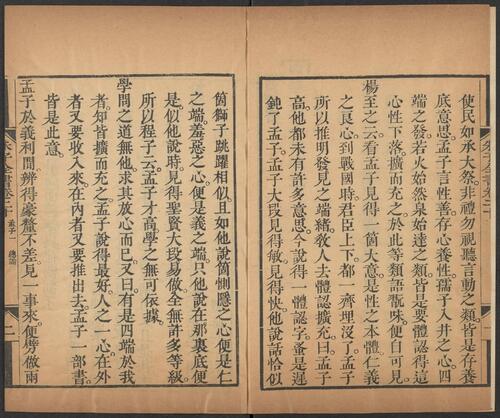 使民如承大祭非禮勿視聽言動之類皆是存養
底意思孟子言性善存心養性孺子入井之心四
端之發若火始然泉始達之類皆是要體認得這
心性下落擴而充之於此等類語翫味便自可見
楊至之云看孟子見得一箇大意是性之本體仁義
之良心到戰國時君臣上下都一齊埋沒了孟子
所以推明發見之端緒教人去體認擴充曰孟子
高他都未有許多意思今說得一體認字蚤是遲
鈍了孟子孟子大段見得敏見得快他說話恰似
箇獅子跳躍相似且如他說箇惻隱之心便是仁
之端羞惡之心便是義之端只他說在那裏底便
是似他說時見得聖賢大段易做全無許多等級
所以程子云孟子才高學之無可依據
學問之道無他求其放心而已又曰有是四端於我
者知皆擴而充之孟子說得最好人之一心在外
者又要收入來在內者又要推出去孟子一部書
皆是此意
孟子於義利間辨得毫釐不差見一事來便劈做兩